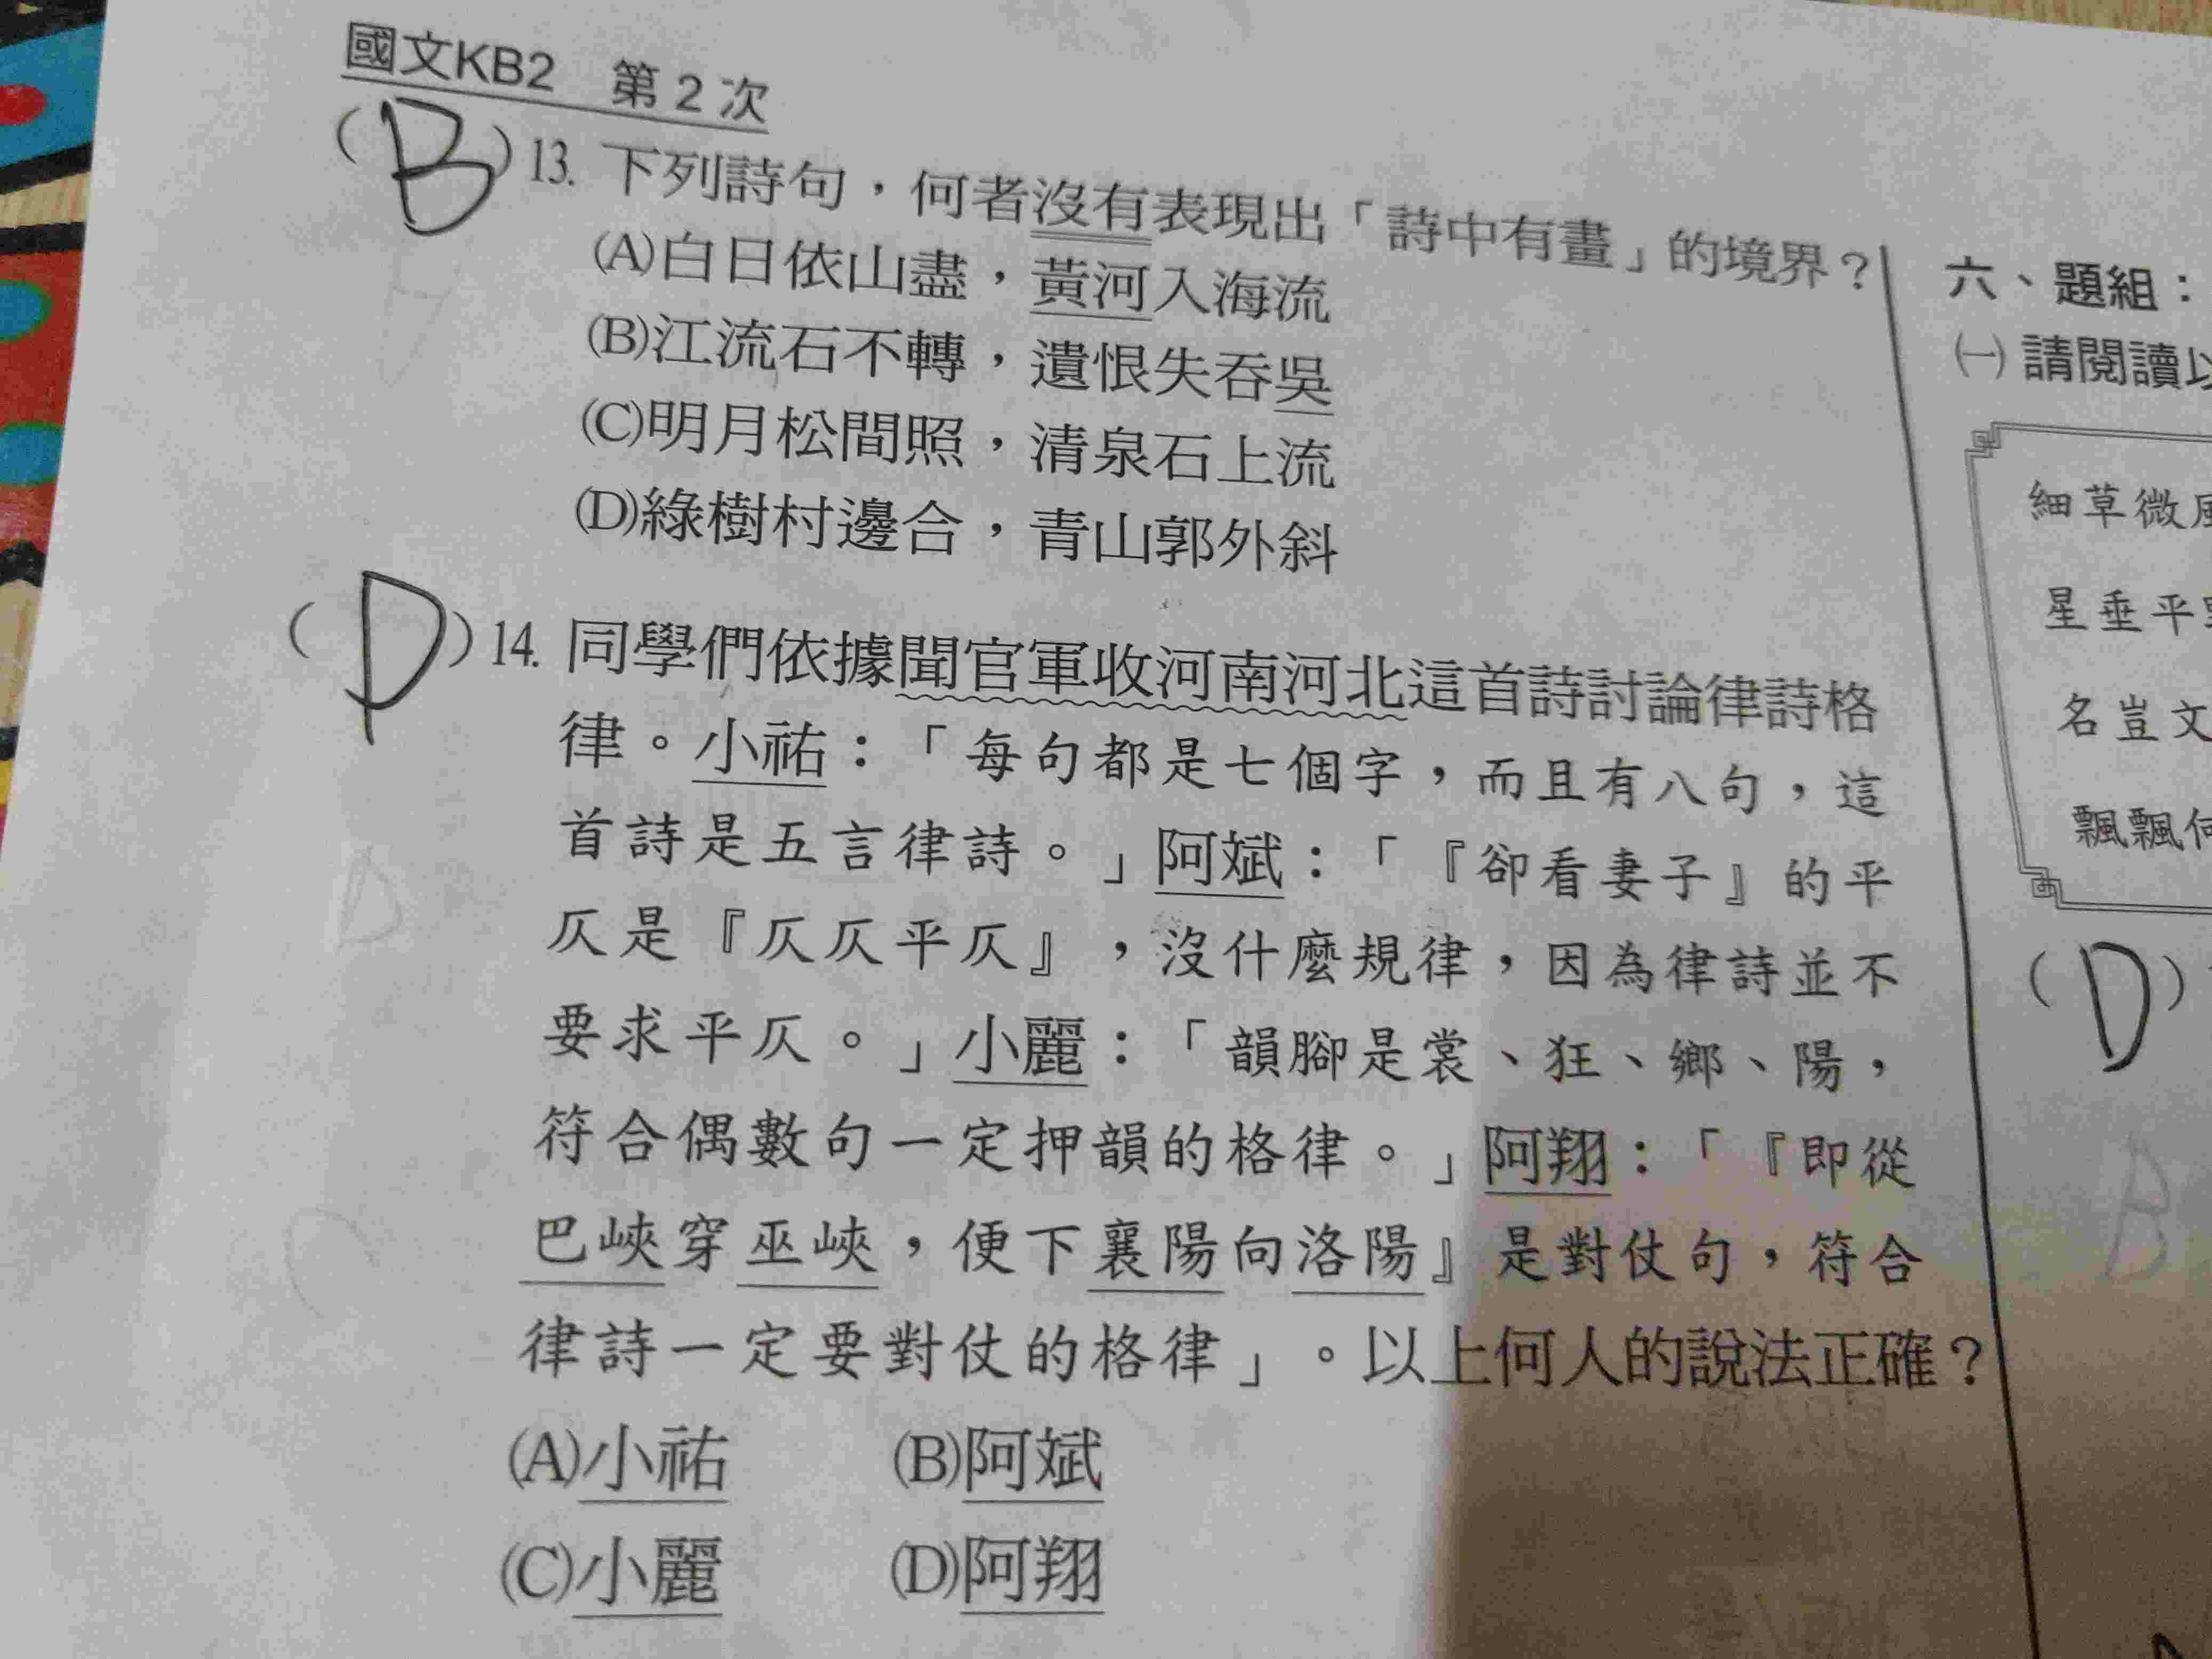 國文KB2　第2次
(B)13. 下列詩句，何者沒有表現出「詩中有畫」的境界？
(A)白日依山盡，黃河入海流
(B)江流石不轉，遺恨失吞吳
(C)明月松間照，清泉石上流
(D)綠樹村邊合，青山郭外斜
(D)14. 同學們依據聞官軍收河南河北這首詩討論律詩格
律。小祐：「每句都是七個字，而且有八句，這
首詩是五言律詩。」阿斌：「『卻看妻子』的平
仄是『仄仄平仄』，沒什麼規律，因為律詩並不
要求平仄。」小麗：「韻腳是裳、狂、鄉、陽，
符合偶數句一定押韻的格律。」阿翔：「『即從
巴峽穿巫峽，便下襄陽向洛陽』是對仗句，符合
律詩一定要對仗的格律」。以上何人的說法正確？
(A)小祐　(B)阿斌
(C)小麗　(D)阿翔
六、題組：
㈠ 請閱讀以
細草微風
星垂平野
名豈文
飄飄何
(D)